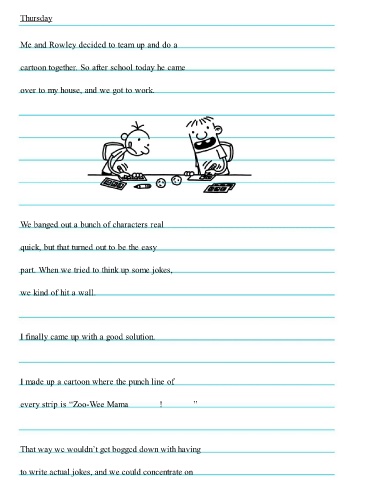 Thursday
Me and Rowley decided to team up and do a
cartoon together. So after school today he came
over to my house, and we got to work.
We banged out a bunch of characters real
quick, but that turned out to be the easy
part. When we tried to think up some jokes,
we kind of hit a wall.
I finally came up with a good solution.
I made up a cartoon where the punch line of
every strip is “Zoo-Wee Mama ! ”
That way we wouldn’t get bogged down with having
to write actual jokes, and we could concentrate on